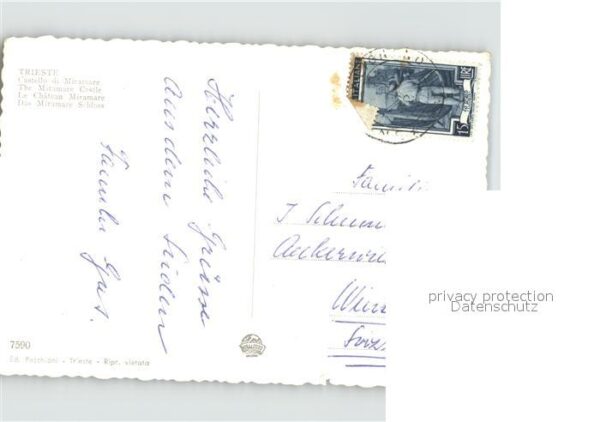 TRIESTE
Castello di Miramare
The Miramare Castle
Le Château Miramare
Das Miramare Schloss
Herzliche Grüsse
aus dem Süden
Familie Gut.
7590
Ed. Polchioni - Trieste - Ripr. vietata
15
Famili
J Schum
Ackerwie
Win
Svizz
privacy protection
Datenschutz